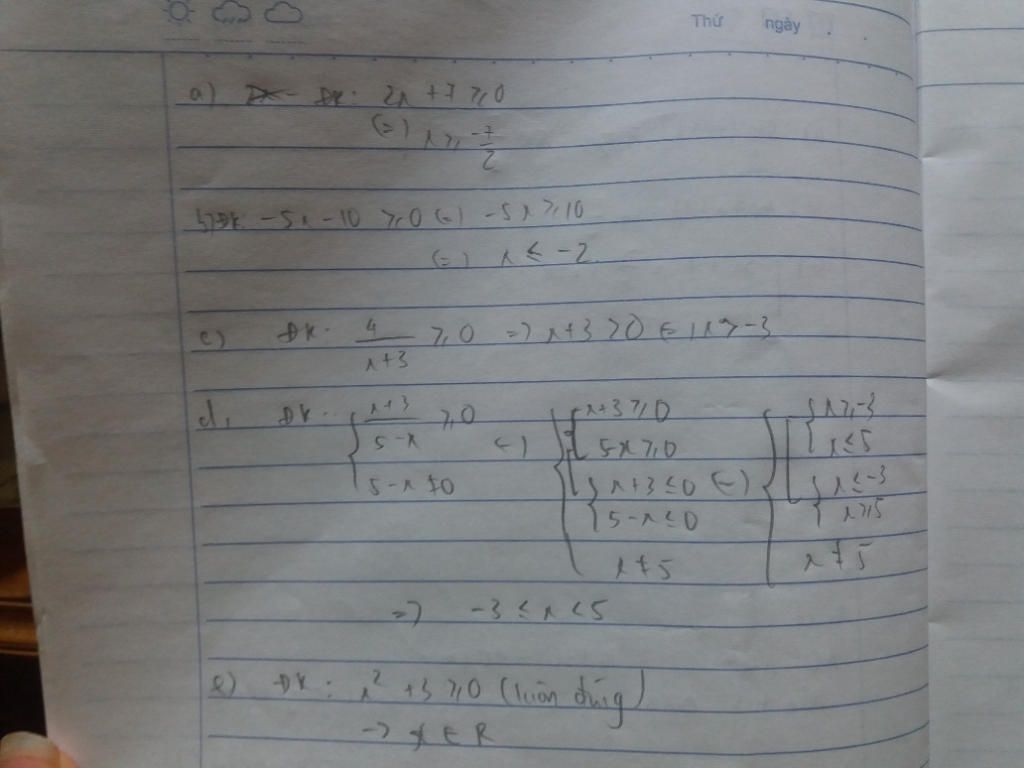 Thứ ngày . .
a) ĐK: 2x + 7 ≥ 0
(=) x ≥ -7/2
b) ĐK: -5x - 10 ≥ 0 (=) -5x ≥ 10
(=) x ≤ -2
c) ĐK: 4/(x+3) ≥ 0 => x+3 > 0 (=) x > -3
d, ĐK: { (x+3)/(5-x) ≥ 0 (=) { [ { x+3 ≥ 0 (=) { [ { x ≥ -3
5-x ≥ 0 x ≤ 5
5-x ≠ 0 { x+3 ≤ 0 { x ≤ -3
5-x ≤ 0 x ≥ 5
x ≠ 5 x ≠ 5
=> -3 ≤ x < 5
e) ĐK: x² + 3 ≥ 0 (luôn đúng)
-> x ∈ R